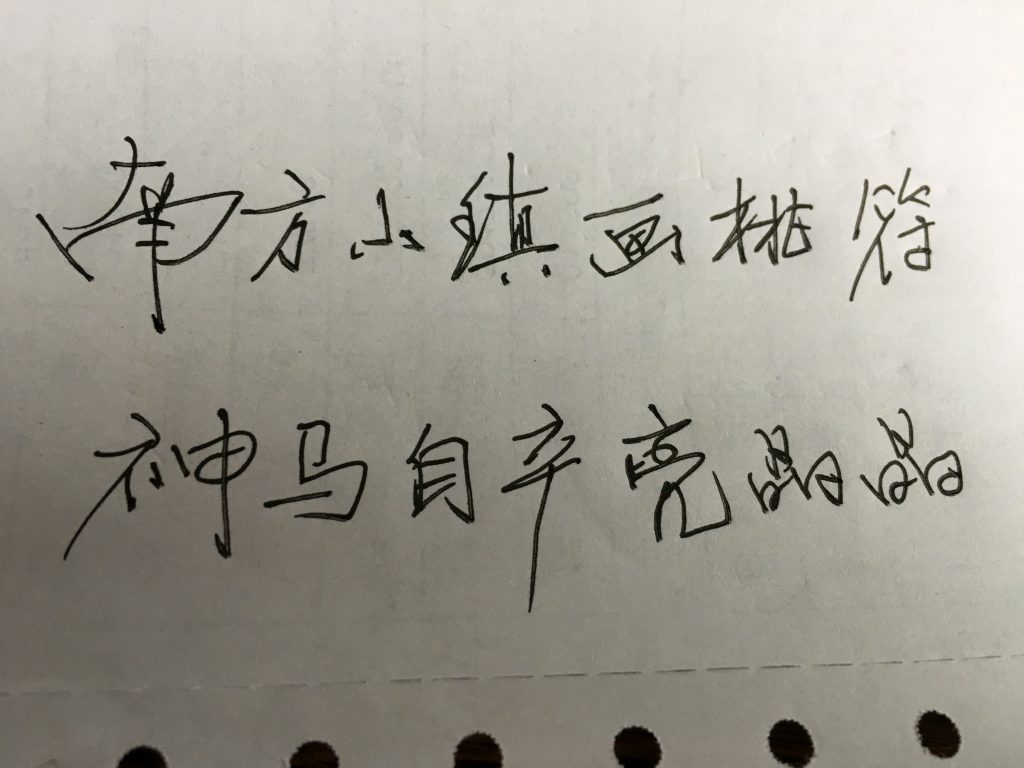 南方小镇画桃符
神马自辛亮晶晶